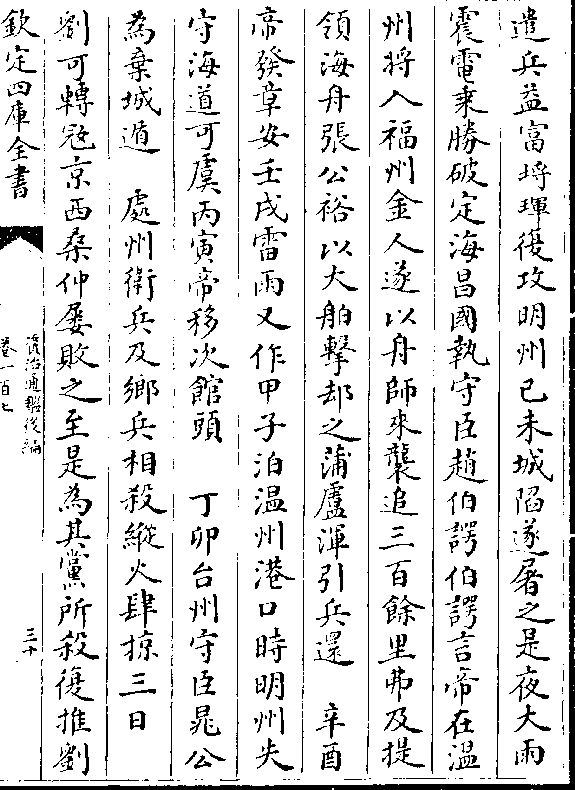 遣兵益富埒琿復攻明州己未城陷遂屠之是夜大雨
震電乗勝破定海昌國執守臣趙伯諤伯諤言帝在温
州將入福州金人遂以舟師來襲追三百餘里弗及提
領海舟張公裕以大舶擊却之蒲盧渾引兵還　辛酉
帝發章安壬戌雷雨又作甲子泊温州港口時明州失
守海道可虞丙寅帝移次館頭　丁卯台州守臣晁公
為棄城遁　處州衛兵及鄉兵相殺縱火肆掠三日
劉可轉宼京西桑仲屢敗之至是為其黨所殺復推劉
欽定四庫全書
資治通鑑後編
卷一百七
三十